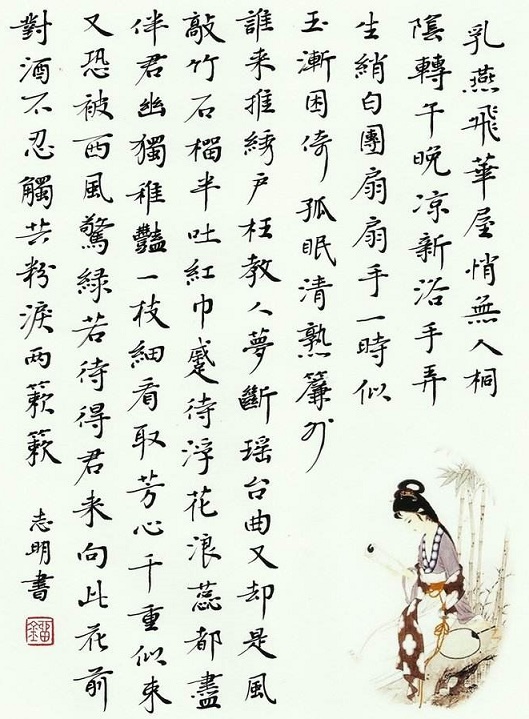 乳燕飛華屋悄無人桐
陰轉午晚凉新浴手弄
生綃白團扇扇手一時似
玉漸困倚孤眠清熟簾外
誰来推綉户枉教人夢斷瑶台曲又却是風
敲竹石榴半吐紅巾蹙待浮花浪蕊都盡
伴君幽獨稚豔一枝細看取芳心千重似束
又恐被西風驚緑若待得君来向此花前
對酒不忍觸共粉淚两簌簌
志明書